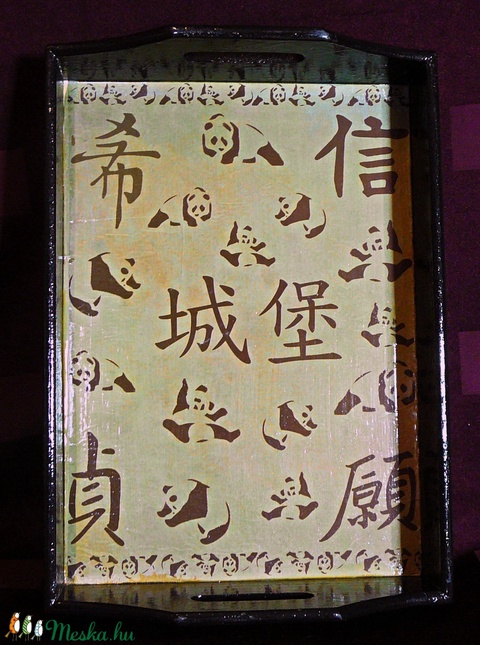 希 信
城 堡
貞 願
Meska.hu